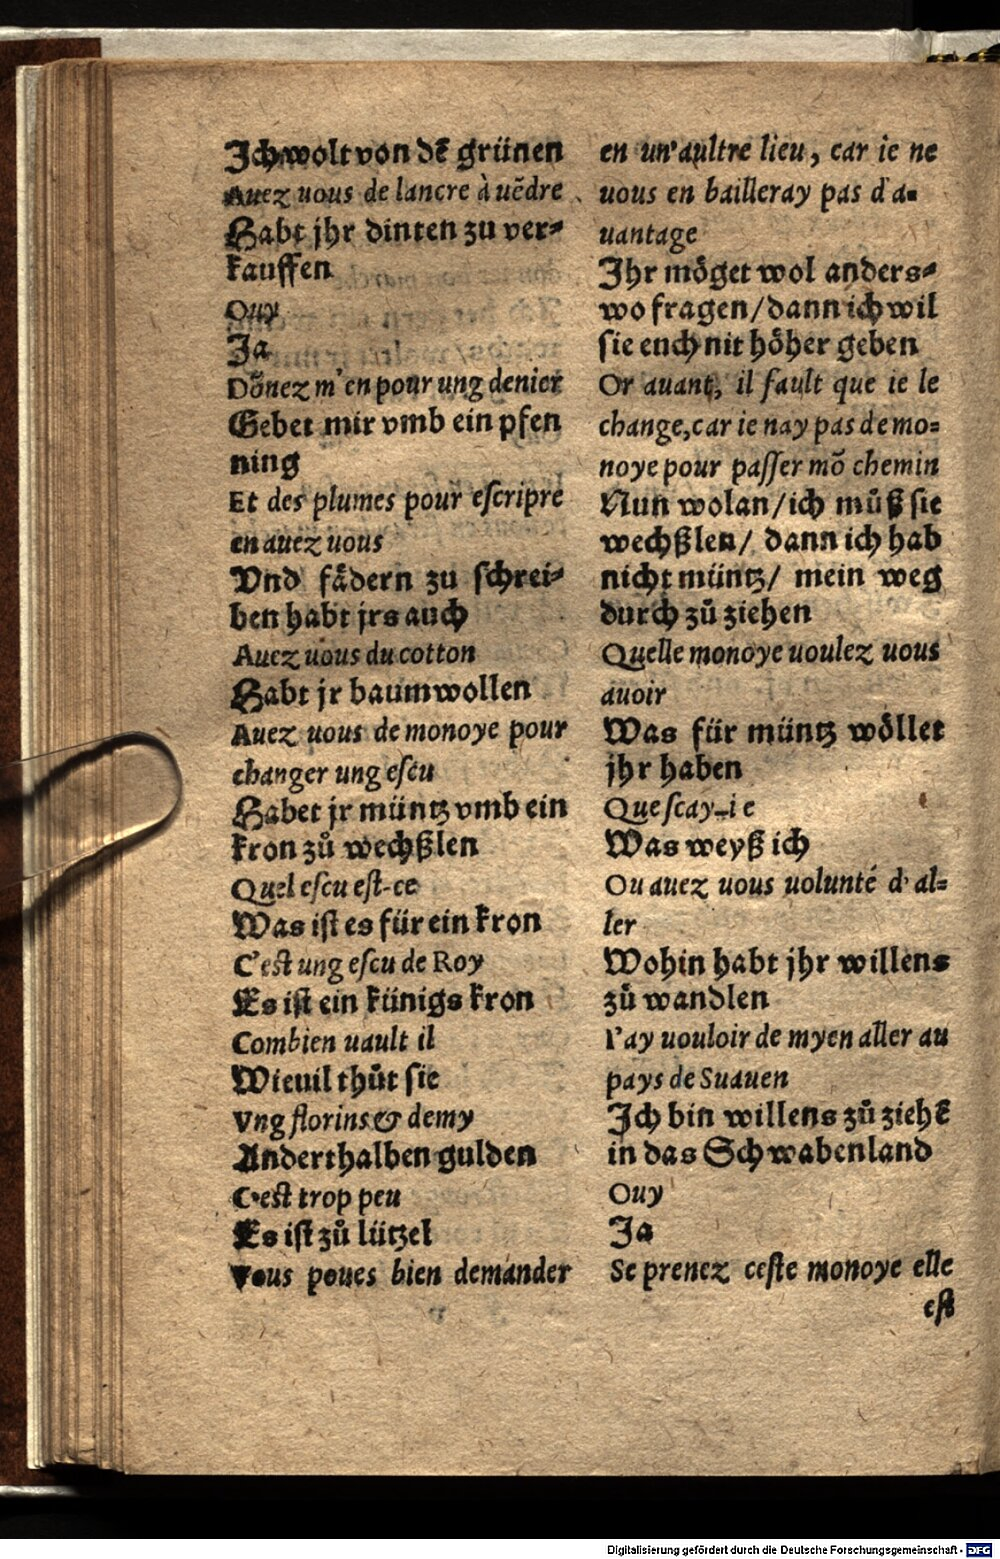 Ich wolt von dē grünen
Auez uous de lancre à uēdre
Habt jhr dinten zu ver⸗
kauffen
Ouy
Ja
Dōnez m'en pour ung denier
Gebet mir vmb ein pfen
ning
Et des plumes pour eſcripre
en auez uous
Vnd fådern zu ſchrei⸗
ben habt jrs auch
Auez uous du cotton
Habt jr baumwollen
Auez uous de monoye pour
changer ung eſcu
Habet jr müntz vmb ein
kron zů wechßlen
Quel eſcu eſt-ce
Was iſt es für ein kron
C'eſt ung eſcu de Roy
Es iſt ein künigs kron
Combien uault il
Wieuil thůt ſie
Vng florins & demy
Anderthalben gulden
C'eſt trop peu
Es iſt zů lützel
Vous poues bien demander
en un'aultre lieu, car ie ne
uous en bailleray pas d'a⸗
uantage
Ihr möget wol anders⸗
wo fragen/dann ich wil
ſie euch nit höher geben
Or auant, il fault que ie le
change,car ie nay pas de mo⸗
noye pour paſſer mō chemin
Nun wolan/ich můß ſie
wechßlen/ dann ich hab
nicht müntz/ mein weg
durch zů ziehen
Quelle monoye uoulez uous
auoir
Was für müntz wöllet
jhr haben
Que ſcay-ie
Was weyß ich
Ou auez uous uolunté d'al⸗
ler
Wohin habt jhr willens
zů wandlen
I'ay uouloir de myen aller au
pays de Suauen
Ich bin willens zů ziehē
in das Schwabenland
Ouy
Ja
Se prenez ceſte monoye elle
eſt
Digitalisierung gefördert durch die Deutsche Forschungsgemeinschaft - DFG